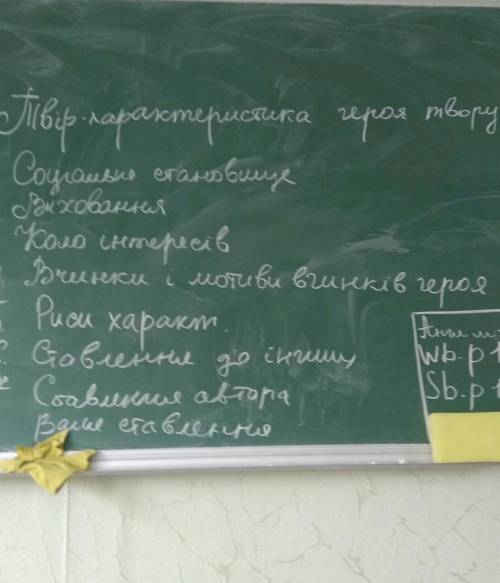 Твір-характеристика героя твору
Соціальне становище
Виховання
Коло інтересів
Вчинки і мотиви вчинків героя
Риси характ.
Ставлення до інших
Ставлення автора
Ваше ставлення
Wb. p
Sb. p